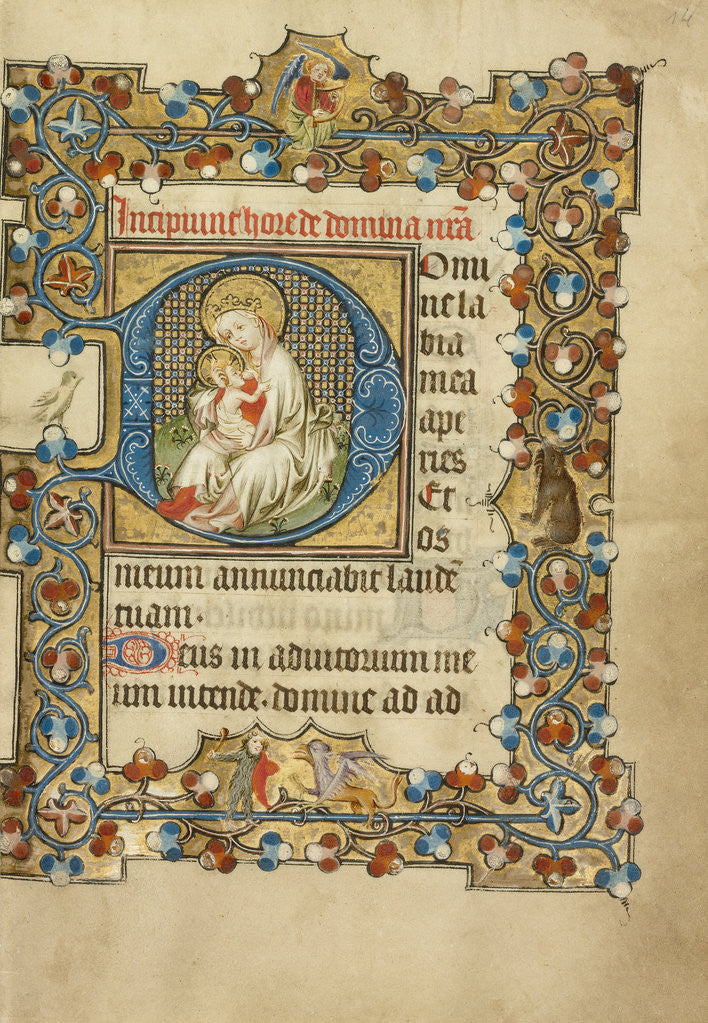 14
Incipiunt hore de domina nr̄a
Domi
ne la
bia
mea
ape
ries
Et
os
meum annunciabit laudē
tuam.
Deus in adiutorium me
um intende. domine ad ad